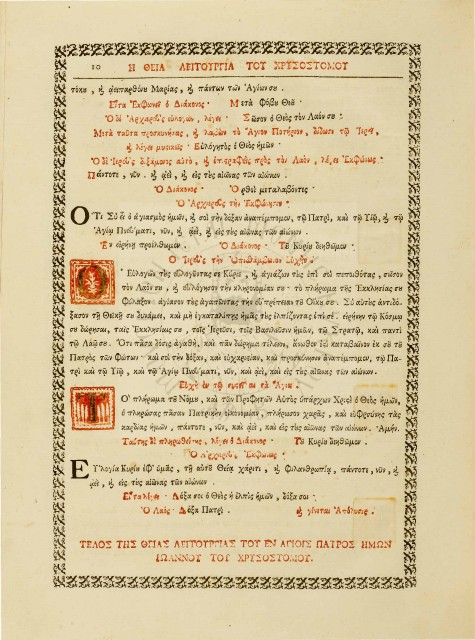 10 Η ΘΕΙΑ ΛΕΙΤΟΥΡΓΙΑ ΤΟΥ ΧΡΥΣΟΣΤΟΜΟΥ
τόκυ, καὶ ἀειπαρθένυ Μαρίας, καὶ πάντων τῶν Ἁγίων σε.
Εἶτα Ἐκφωνεῖ ὁ Διάκονος· Μετὰ Φόβυ Θεῦ
Ὁ δὲ Ἀρχιερεὺς εὐλογῶν, λέγει· Σῶσον ὁ Θεὸς τὸν Λαόν σε·
Μετὰ ταῦτα προσκυνήσας, καὶ λαβὼν τὸ Ἅγιον Ποτήριον, δίδωσι τῷ Ἱερεῖ,
καὶ λέγει μυστικῶς· Εὐλόγητὸς ὁ Θεὸς ἡμῶν·
Ὁ δὲ Ἱερεὺς δεξάμενος αὐτὸ, καὶ ἐπιστραφεὶς πρὸς τὸν Λαὸν, λέγει Ἐκφώνως·
Πάντοτε, νῦν, καὶ ἀεὶ, καὶ εἰς τὰς αἰῶνας τῶν αἰώνων.
Ὁ Διάκονος· Ὀρθοὶ μεταλαβόντες·
Ὁ Ἀρχιερεὺς τὴν Ἐκφώνησιν·
ΟΤι Σὺ εἶ ὁ ἁγιασμὸς ἡμῶν, καὶ σοὶ τὴν δόξαν ἀναπέμπομεν, τῷ Πατρὶ, καὶ τῷ Υἱῷ, καὶ τῷ
Ἁγίῳ Πνεύματι, νῦν, καὶ ἀεὶ, καὶ εἰς τὰς αἰῶνας τῶν αἰώνων.
Ἐν εἰρήνῃ προέλθωμεν. Ὁ Διάκονος· Τῦ Κυρίυ δεηθῶμεν·
Ὁ Ἱερεὺς τὴν Ὀπισθάμβωνον Εὐχήν·
Ο Εὐλογῶν τὰς εὐλογῦντας σε Κύριε, καὶ ἁγιάζων τὰς ἐπὶ σοὶ πεποιθότας, σῶσον
τὸν Λαόν σε, καὶ εὐλόγησον τὴν κληρονομίαν σε· τὸ πλήρωμα τῆς Ἐκκλησίας σε
φύλαξον· ἁγίασον τὰς ἀγαπῶντας τὴν εὐπρέπειαν τῦ Οἴκυ σε. Σὺ αὐτὰς ἀντιδό-
ξασον τῇ Θεϊκῇ σε δυνάμει, καὶ μὴ ἐγκαταλίπῃς ἡμᾶς τὰς ἐλπίζοντας ἐπὶ σέ. εἰρήνην τῷ Κόσμῳ
σε δώρησαι, ταῖς Ἐκκλησίαις σε, τοῖς Ἱερεῦσι, τοῖς Βασιλεῦσιν ἡμῶν, τῷ Στρατῷ, καὶ παντὶ
τῷ Λαῷ σε. Ὅτι πᾶσα δόσις ἀγαθὴ, καὶ πᾶν δώρημα τέλειον, ἄνωθέν ἐστι καταβαῖνον ἐκ σῦ τῦ
Πατρὸς τῶν Φώτων· καὶ σοὶ τὴν δόξαν, καὶ εὐχαριστίαν, καὶ προσκύνησιν ἀναπέμπομεν, τῷ Πα-
τρὶ καὶ τῷ Υἱῷ, καὶ τῷ Ἁγίῳ Πνεύματι, νῦν, καὶ ἀεὶ, καὶ εἰς τὰς αἰῶνας τῶν αἰώνων.
Εὐχὴ ἐν τῷ συστεῖλαι τὰ Ἅγια.
Τὸ πλήρωμα τῦ Νόμυ, καὶ τῶν Προφητῶν Αὐτὸς ὑπάρχων Χριστὲ ὁ Θεὸς ἡμῶν,
ὁ πληρώσας πᾶσαν Πατρικὴν οἰκονομίαν, πλήρωσον χαρᾶς, καὶ εὐφροσύνης τὰς
καρδίας ἡμῶν, πάντοτε, νῦν, καὶ ἀεὶ, καὶ εἰς τὰς αἰῶνας τῶν αἰώνων. Ἀμήν.
Ταύτης δὲ πληρωθείσης, λέγει ὁ Διάκονος· Τῦ Κυρίυ δεηθῶμεν·
Ὁ Ἀρχιερεὺς, Ἐκφώνως·
ΕΥλογία Κυρίυ ἐφ' ὑμᾶς, τῇ αὐτῦ Θείᾳ χάριτι, καὶ φιλανθρωπίᾳ, πάντοτε, νῦν, καὶ
ἀεὶ, καὶ εἰς τὰς αἰῶνας τῶν αἰώνων.
Εἶτα λέγει· Δόξα σοι ὁ Θεὸς ἡ ἐλπὶς ἡμῶν, δόξα σοι·
Ὁ Λαὸς· Δόξα Πατρὶ. καὶ γίνεται Ἀπόλυσις.
ΤΕΛΟΣ ΤΗΣ ΘΕΙΑΣ ΛΕΙΤΟΥΡΓΙΑΣ ΤΟΥ ΕΝ ΑΓΙΟΙΣ ΠΑΤΡΟΣ ΗΜΩΝ
ΙΩΑΝΝΟΥ ΤΟΥ ΧΡΥΣΟΣΤΟΜΟΥ.